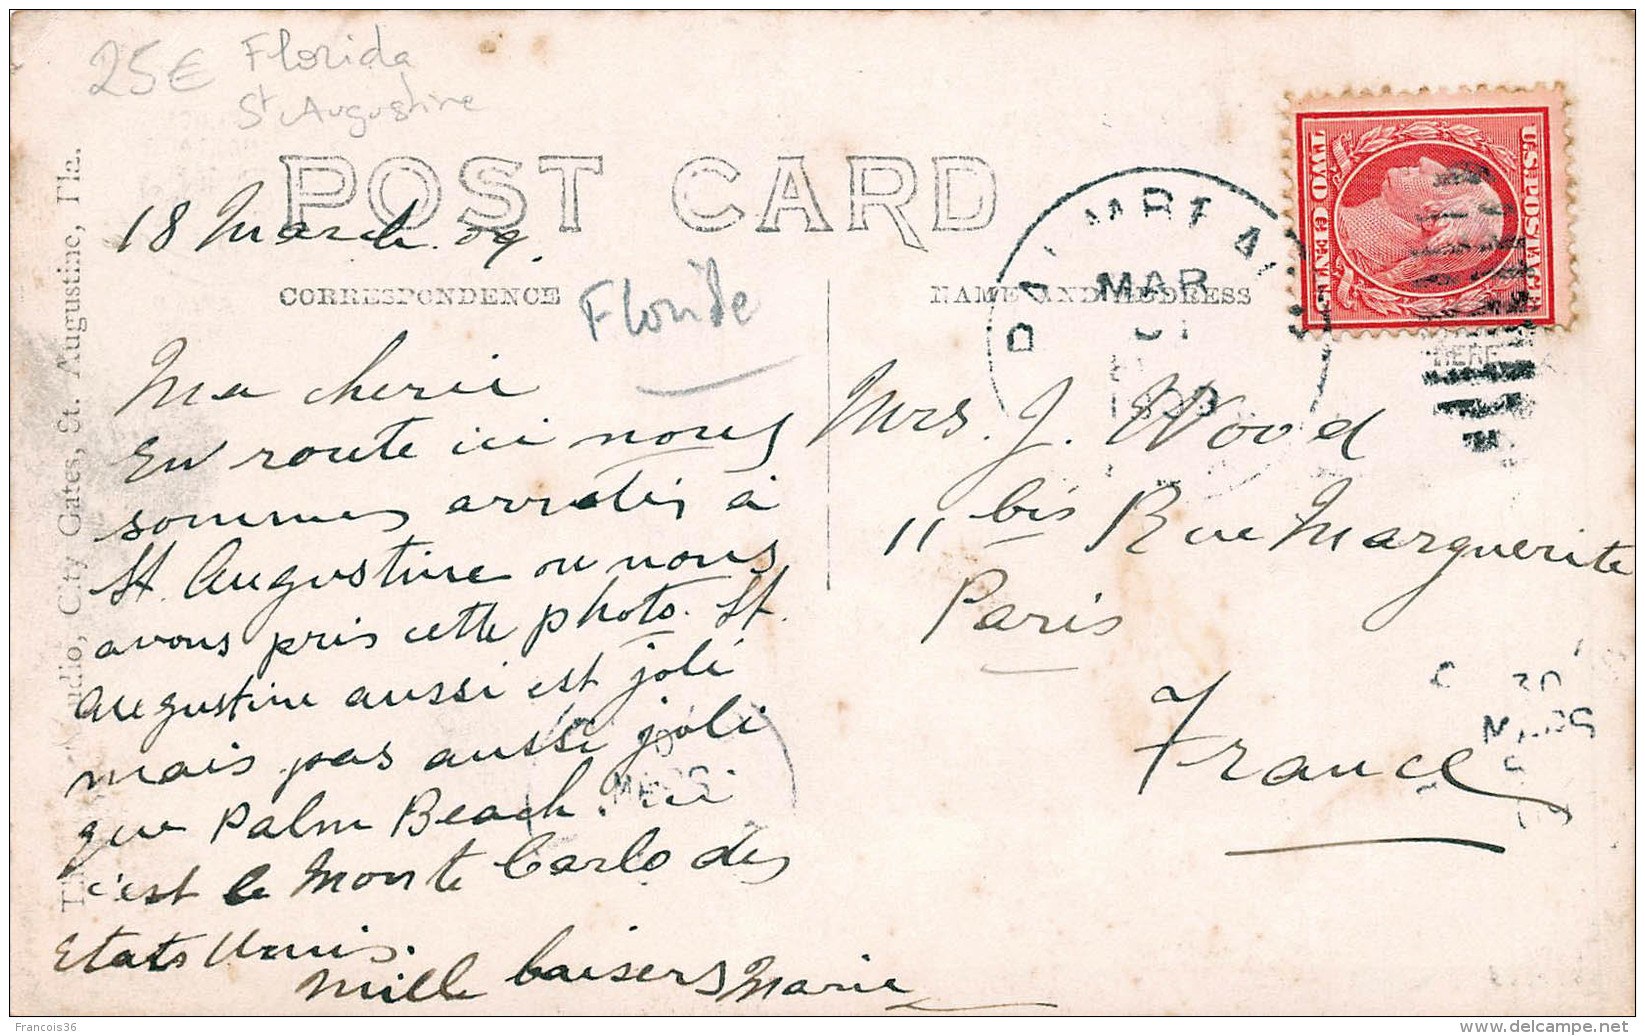 25€ Florida
St Augustine
POST CARD
18 March 09.
CORRESPONDENCE
Floride
NAME AND ADDRESS
MAR
U.S. POSTAGE
TWO CENTS
Ma cherie
En route ici nous
sommes arretés à
St. Augustine ou nous
avons pris cette photo. St.
Augustine aussi est joli
mais pas aussi joli
que Palm Beach. ici
c'est le Monte Carlo des
Etats Unis.
Mille baisers Marie
Mrs. J. Wood
11 bis Rue Marguerite
Paris
France
City Gates, St. Augustine, Fla.
Francois36
delcampe.net